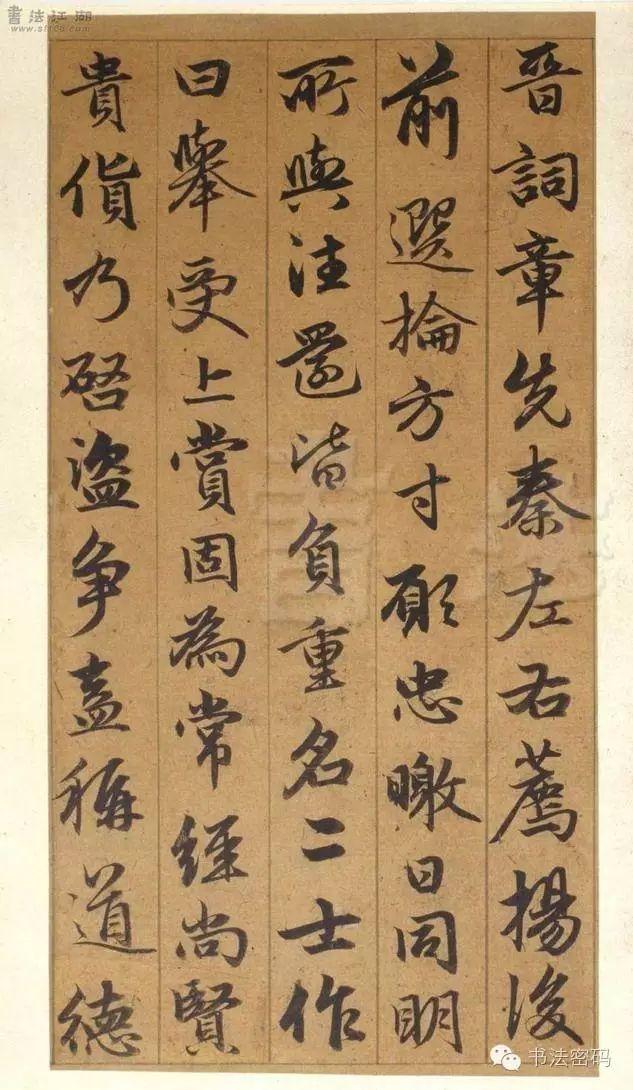 書法江湖
www.sf108.com
晉詞章先秦左右薦揚後
前選掄方寸願忠曒日同明
所與往還皆負重名二士作
曰舉受上賞固為常經尚賢
貴貨乃啓盜爭盍稱道德
书法密码